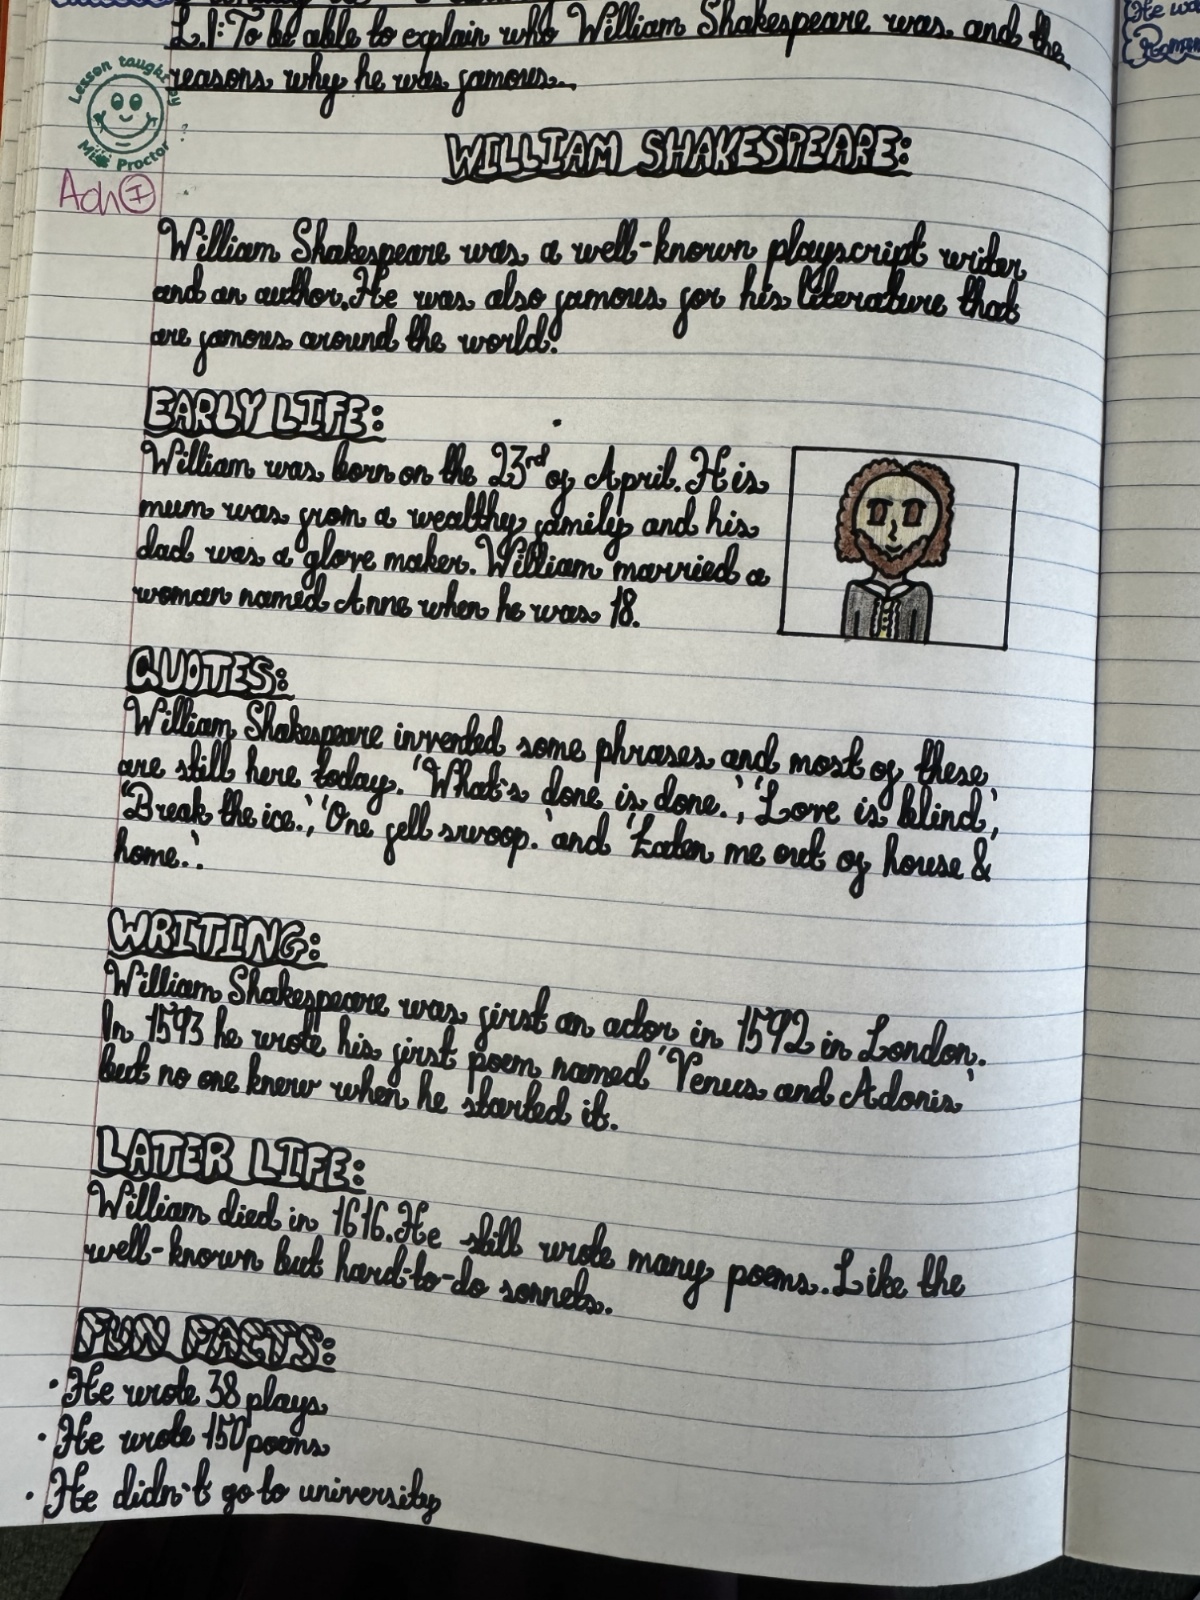 L.I: To be able to explain who William Shakespeare was and the
reasons why he was famous.
Lesson taught by
Miss Proctor
Ach I
WILLIAM SHAKESPEARE:
William Shakespeare was a well-known playscript writer
and an author. He was also famous for his literature that
are famous around the world.
EARLY LIFE:
William was born on the 23rd of April. His
mum was from a wealthy family and his
dad was a glove maker. William married a
woman named Anne when he was 18.
QUOTES:
William Shakespeare invented some phrases and most of these
are still here today. 'What's done is done.', 'Love is blind',
'Break the ice.', 'One fell swoop.' and 'Eaten me out of house &
home.'.
WRITING:
William Shakespeare was first an actor in 1592 in London.
In 1593 he wrote his first poem named 'Venus and Adonis'
but no one knew when he started it.
LATER LIFE:
William died in 1616. He still wrote many poems. Like the
well-known but hard-to-do sonnets.
FUN FACTS:
• He wrote 38 plays
• He wrote 150 poems
• He didn't go to university
He was